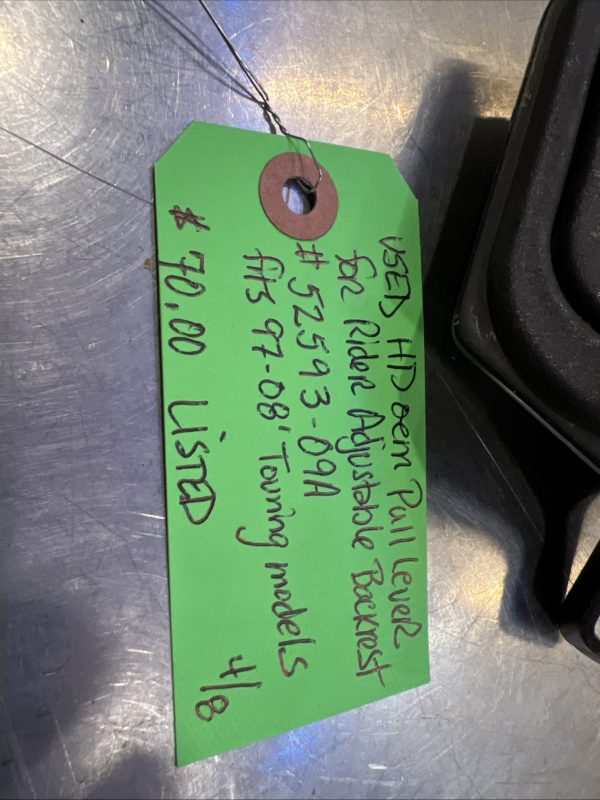 USED HD oem Pull Lever
for Rider Adjustable Backrest
# 52593-09A
fits 97-08' Touring models
$ 70.00 LiSTED 4/8